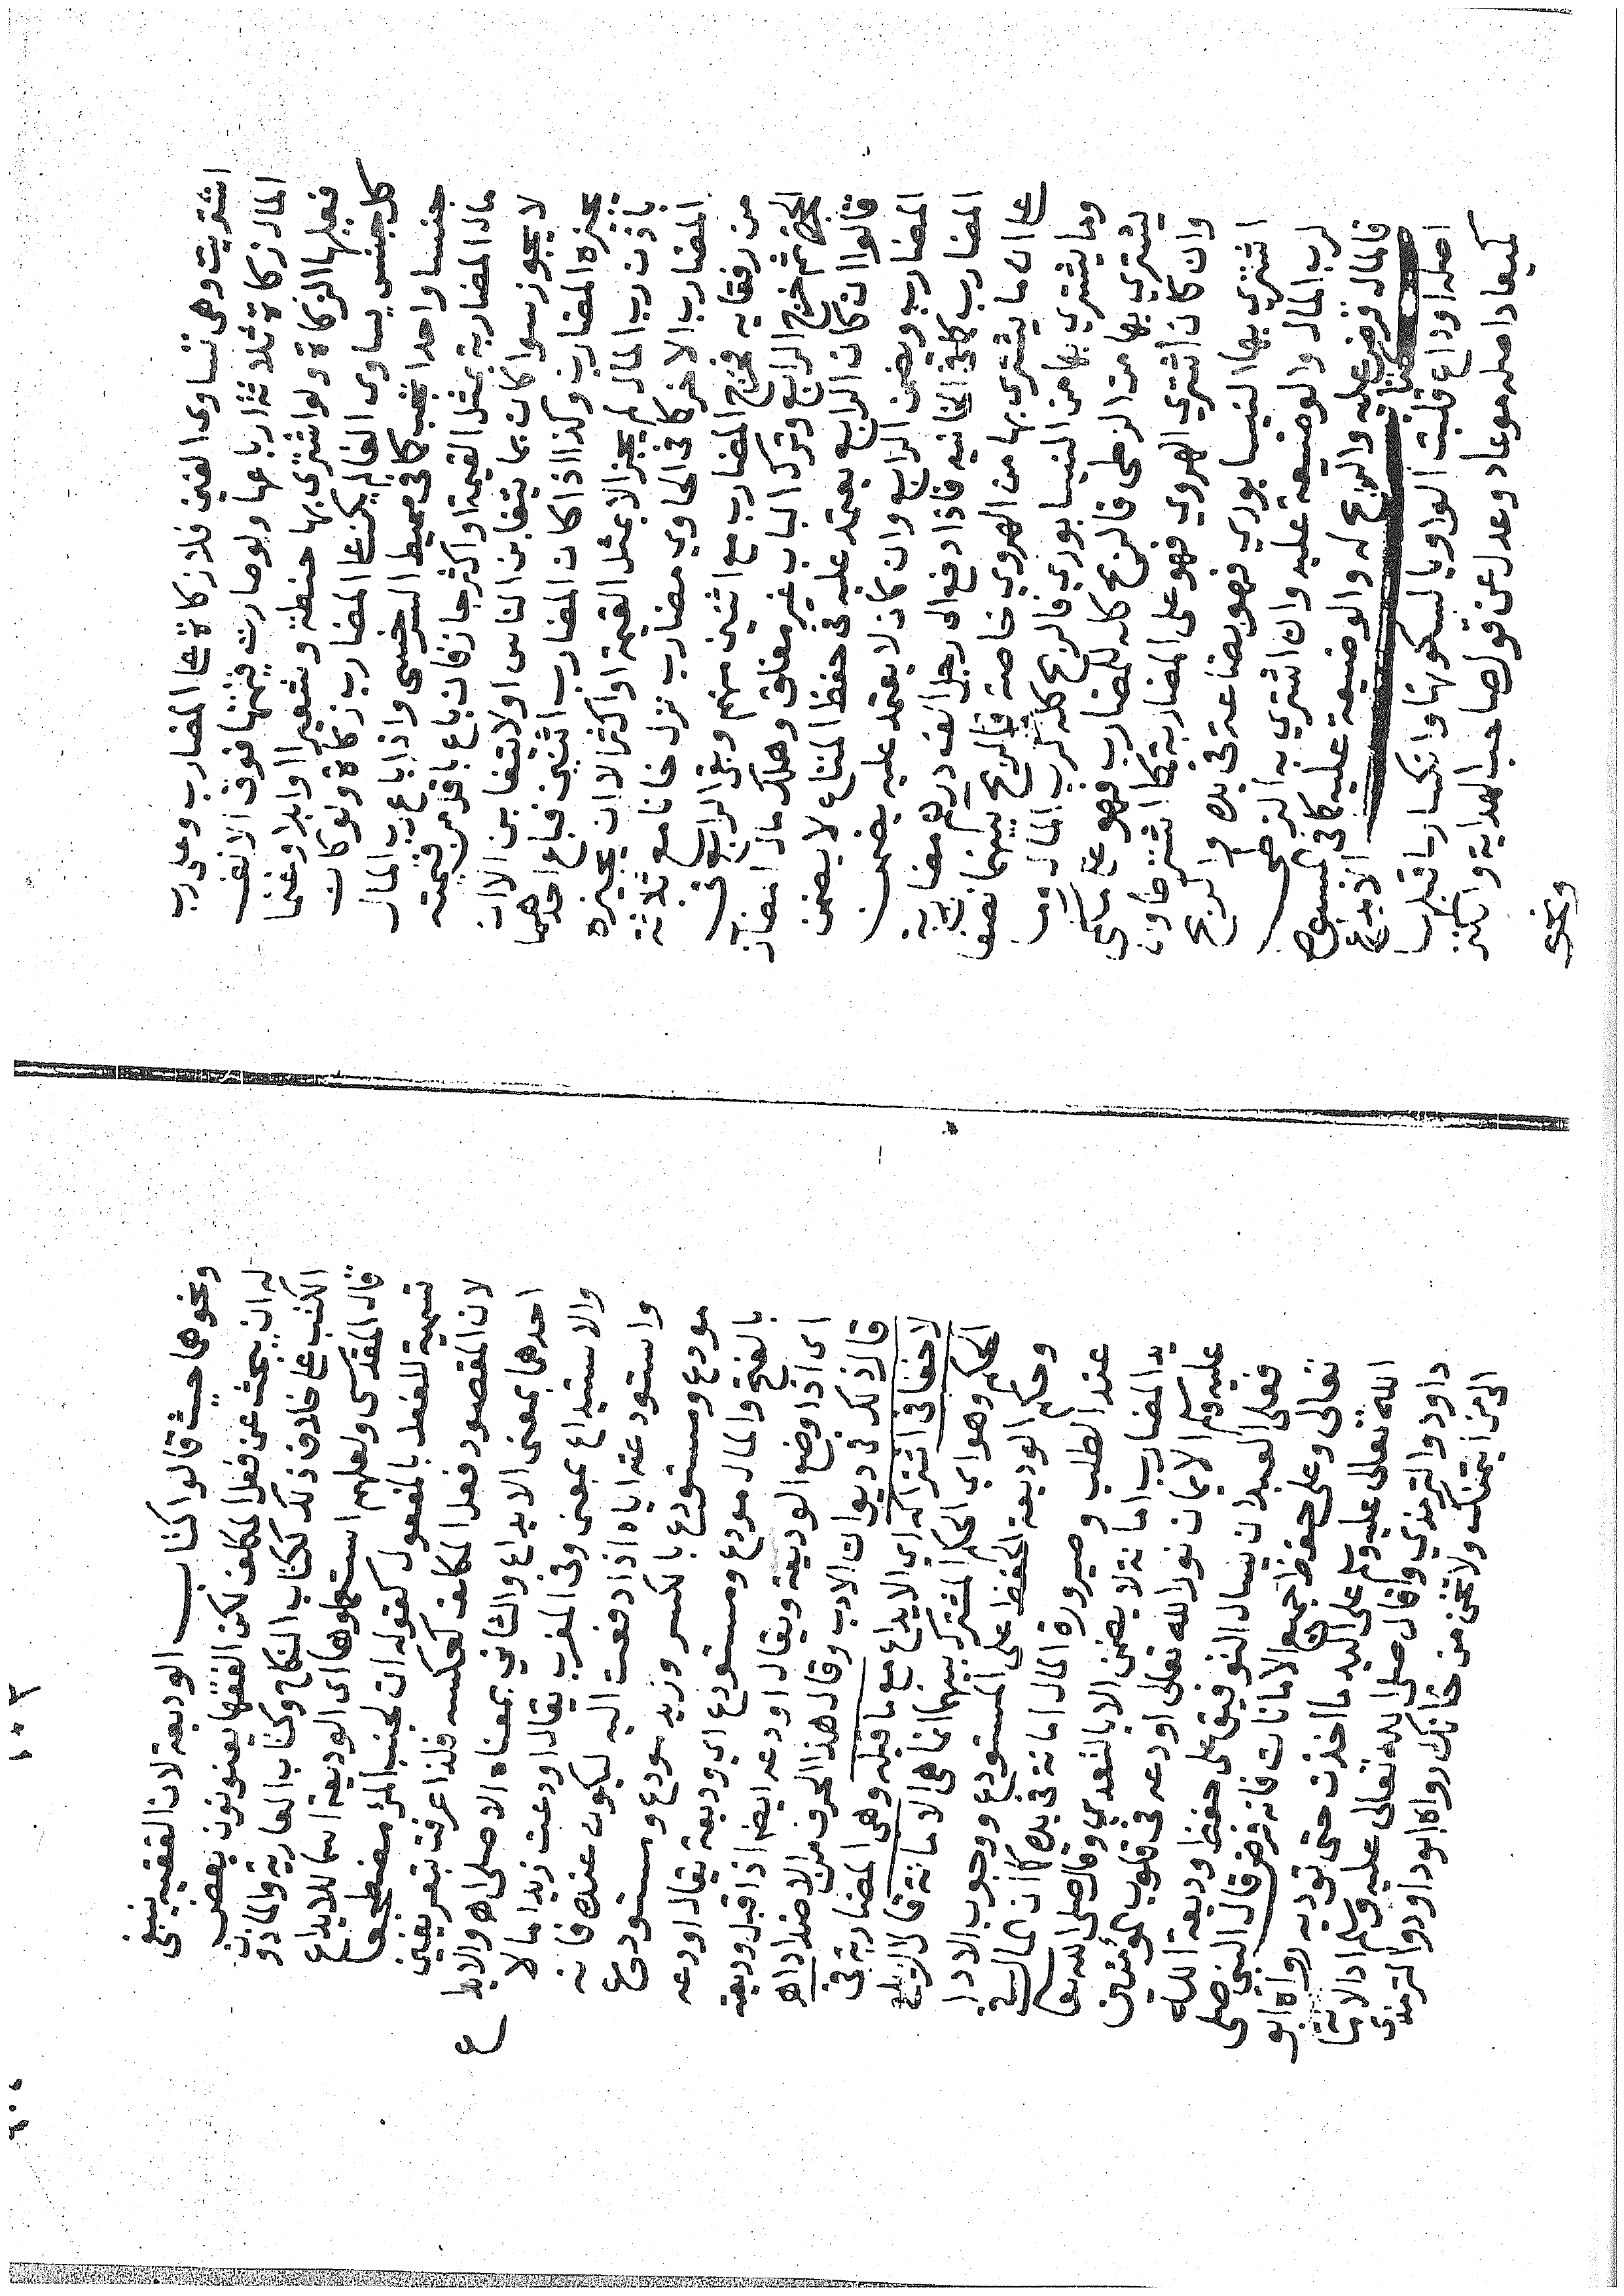 اشتريت وهى تساوى الفين فلا زكاة على المضارب وعلى رب
المال زكاة ثلاثة ارباعها ولو صارت قيمتها فوق الالف
فعليها الزكاة ولو اشترى بها حنطة وشعيرا وابلا وغنما
كل جنس يساوى الفا لم يكن على المضارب زكاة ولو كانت
جنسا واحدا تجب كما فى محيط السرخسى واذا باع رب المال
مال المضاربة بمثل القيمة او اكثر جاز فان باع باقل من قيمته
لا يجوز سوا كان بما يتغابن الناس او لا يتغابن الا ان
يجيزه المضارب وكذا اذا كان المضارب اثنين فباع احدهما
باذن رب المال لم يجز الا بمثل القيمة او اكثر الا ان يجيزه
المضارب الاخر كما فى الحاوي مضارب نزل خانا مع ثلاثة
من رفقايه فخرج المضارب مع اثنين منهم وبقى الرابع فى
الحجرة ثم خرج الرابع وترك الباب غير مغلق وهلك مال المضاربة
قالوا ان كان الرابع يعتمد عليه فى حفظ المتاع لا يضمن
المضارب ويضمن الرابع وان كان لا يعتمد عليه يضمن
المضارب كما فى الخانيه فاذا دفع الى رجل الف درهم مضاربة
على ان ما يشترى بها من الهروي خاصة فالربح بينهما نصفان
وما يشتري بها من النيسابوري فالربح كله لرب المال وما
يشتري بها من الزطى فالربح كله للمضارب فهو على ما سمى
وان كان اشتري الهروي فهو على المضاربة كما اشترطا وان
اشترى بها النيسابوري فهو بضاعة فى يده والربح
لرب المال والوضيعة عليه وان اشتري به الزطى
فالمال قرض عليه والربح له والوضيعة عليه كما فى المبسوط
كتاب الايداع
اصله اوداع قلبت الواو يا لسكونها وانكسار ما قبلها
كميعاد اصله موعاد وعدل عن قول صاحب الهداية والكنز
ونحوهما
ونحوهما حيث قالوا كتاب الوديعة لان الفقيه ينبغى
له ان يبحث عن فعل المكلف لكن الفقها يعنونون بعض
الكتب على خلاف ذلك ككتاب النكاح وكتاب العاريه والماذون
قال المقدسى ولعلهم استعملوها اى الوديعة اسما للايداع
تسمية للفعل بالمفعول كقوله ان لجنب المرء مضطجعا
لان المقصود فعل المكلف كعكسه فلذا عرفت بتعريفين
احدهما بمعنى الايداع والثانى بمعناه الاصلى اه والايداع
والاستيداع بمعنى وفى المغرب يقال اودعت زيدا مالا
واستودعته اياه اذا دفعت اليه ليكون عنده فانه
مودع ومستودع بالكسر وزيد مودع ومستودع
بالفتح والمال مودع ومستودع اي وديعة يقال اودعه
اى اذا وضع الوديعة ويقال اودعه ايضا اذا قبل وديعة
قال ذلك فى ديوان الادب وقال هذا الحرف من الاضداد اه
لا خفا فى اشتراكه اي الايداع مع ما قبله وهى المضاربة فى
الحكم وهو اي الحكم المشترك بينهما انما هى الامانة قال الزيلعى
وحكم الوديعة الحفظ على المستودع ووجوب الادا
عند الطلب وصيرورة المال امانة فى يده كما ان المال فى
يد المضارب امانة لا يضمن الا بالتعدي وقال صلى الله تعالى
عليه وسلم الايمان نور الله تعالى اودعه فى قلوب المؤمنين
فعلى العبد ان يسال التوفيق على حفظ وديعة الله
تعالى وعلى حفظ جميع الامانات فانه فرض قال النبي صلى
الله تعالى عليه وسلم على اليد ما اخذت حتى توديه رواه ابو
داود والترمذي وقال صلى الله تعالى عليه وسلم اد الامانة
الى من ايتمنك ولا تخن من خانك رواه ابو داود والترمذى
١٥٣